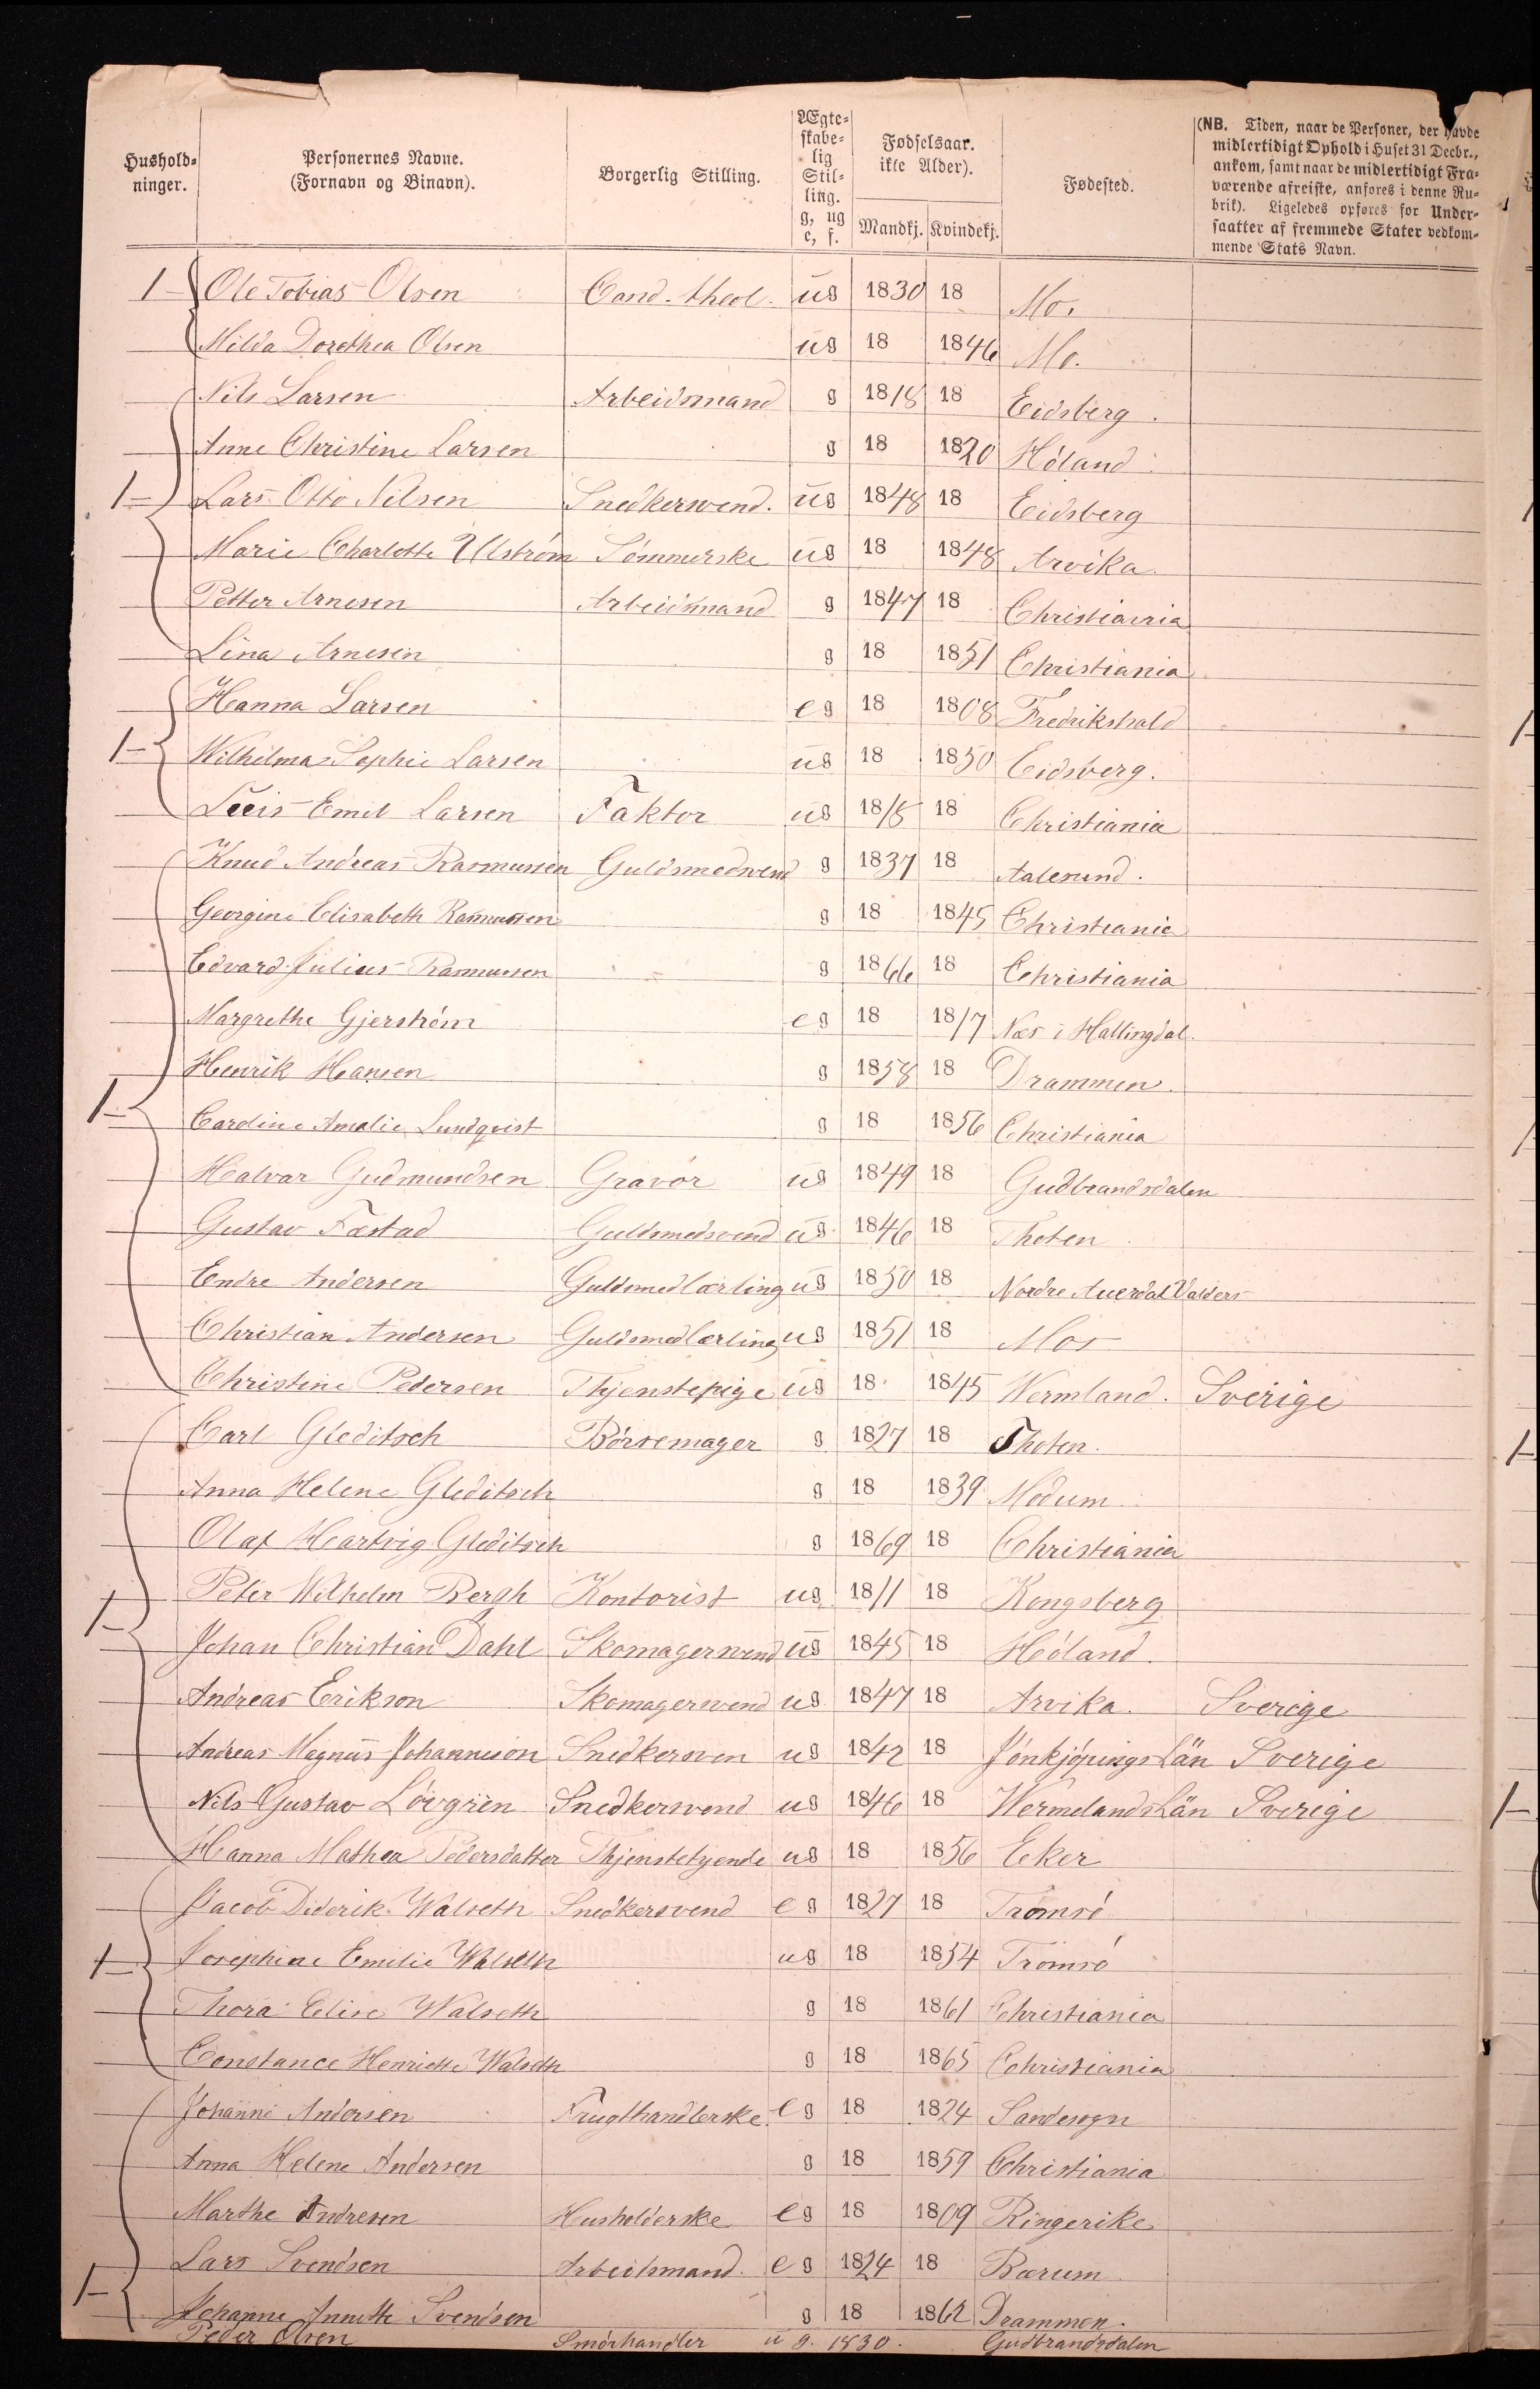 Hushold-
ninger.
Personernes Navne.
(Fornavn og Binavn).
Borgerlig Stilling.
Ægte-
skabe-
lig
Stil-
ling.
g, ug
e, f.
Fødselsaar.
ikke Alder).
Mandkj. Kvindekj.
Fødested.
(NB. Tiden, naar de Personer, der havde
midlertidigt Ophold i Huset 31 Decbr.,
ankom, samt naar de midlertidigt Fra-
værende afreiste, anføres i denne Ru-
brik). Ligeledes opføres for Under-
saatter af fremmede Stater vedkom-
mende Stats Navn.
1 Ole Tobias Olsen Cand. theol. ug 1830 18 Mo.
Hilda Dorethea Olsen ug 18 1846 Mo.
Nils Larsen Arbeidsmand g 1818 18 Eidsberg.
Anne Christine Larsen g 18 1820 Høland
1 Lars Otto Nilsen Snedkersvend. ug 1848 18 Eidsberg
Marie Charlotte Ulström Sömmerske ug 18 1848 Arvika
Petter Arnesen Arbeidsmand g 1847 18 Christiania
Lina Arnesen g 18 1851 Christiania
Hanna Larsen eg 18 1808 Fredrikshald
1 Wilhelma Sophie Larsen ug 18 1850 Eidsberg.
Louis Emil Larsen Faktor ug 1818 18 Christiania
Knud Andreas Rasmussen Guldsmedsvend g 1837 18 Aalesund.
Georgine Elisabeth Rasmussen g 18 1845 Christiania
Edvard Julius Rasmussen g 1866 18 Christiania
Margrethe Gjerström eg 18 1817 Næs i Hallingdal.
Henrik Hansen g 1858 18 Drammen.
1 Caroline Amalie Lundqvist g 18 1856 Christiania
Halvar Gudmundsen Gravör ug 1849 18 Gudbrandsdalen
Gustav Fæstad Guldsmedsvend ug 1846 18 Thoten
Endre Andersen Guldsmedlærling ug 1850 18 Nordre Auerdal Valders
Christian Andersen Guldsmedlærling ug 1851 18 Mos
Christine Pedersen Thjenstepige ug 18 1845 Wermland. Sverige
Carl Gleditsch Börsemager g 1827 18 Thoten.
Anna Helene Gleditsch g 18 1839 Modum
Olaf Hartvig Gleditsch g 1869 18 Christiania
1 Peter Wilhelm Bergh Kontorist ug 1811 18 Kongsberg
Johan Christian Dahl Skomagersvend ug 1845 18 Høland.
Andreas Erikson Skomagersvend ug 1847 18 Arvika. Sverige
Andreas Magnus Johannison Snedkersven ug 1842 18 Jönkjöpings Län Sverige
Nils Gustav Lövgrèn Snedkersvend ug 1846 18 Wermelands Län Sverige
Hanna Mathea Pedersdatter Thjenstetyende ug 18 1856 Eker
Jacob Diderik Walseth Snedkersvend eg 1827 18 Tromsö
1 Josephine Emilie Walseth ug 18 1854 Tromsö
Thora Elise Walseth g 18 1861 Christiania
Constance Henriette Walseth g 18 1865 Christiania
Johanne Andersen Frugthandlerske eg 18 1824 Sandesogn
Anna Helene Andersen g 18 1859 Christiania
Marthe Andresen Husholderske eg 18 1809 Ringerike
Lars Svendsen Arbeidsmand. eg 1824 18 Bærum
1 Johanne Annette Svendsen g 18 1862 Drammen.
Peder Olsen Smörhandler ug. 1830. Gudbrandsdalen